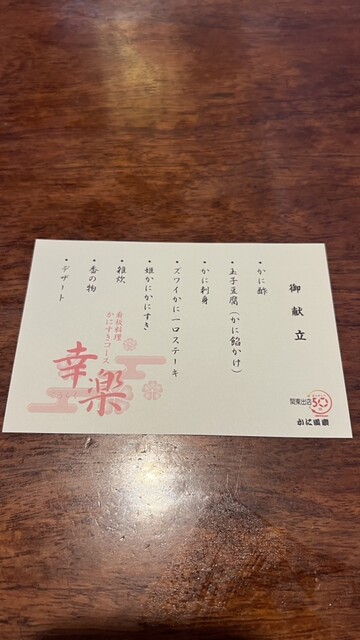 御献立
・かに酢
・玉子豆腐(かに餡かけ)
・かに刺身
・ズワイかに一口ステーキ
・姫かにかにすき
・雑炊
・香の物
・デザート
看板料理
かにすきコース
幸楽
関東出店
50
かに道楽